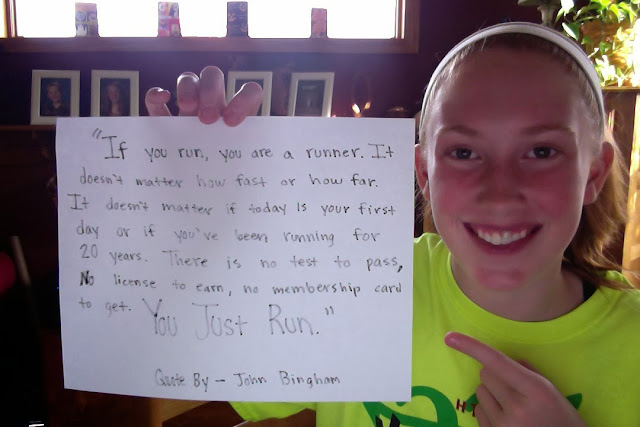 "If you run, you are a runner. It
doesn't matter how fast or how far.
It doesn't matter if today is your first
day or if you've been running for
20 years. There is no test to pass,
No license to earn, no membership card
to get. You Just Run."
Quote By - John Bingham